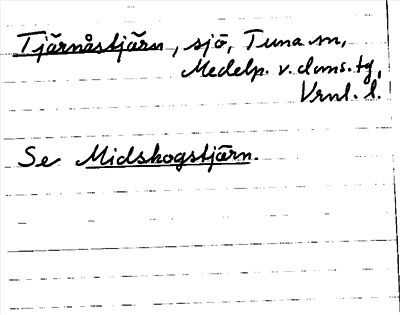 Tjärnåstjärn, sjö, Tuna sn,
Medelp. v. doms.tg,
Vrnl. l.
Se Midskogstjärn.